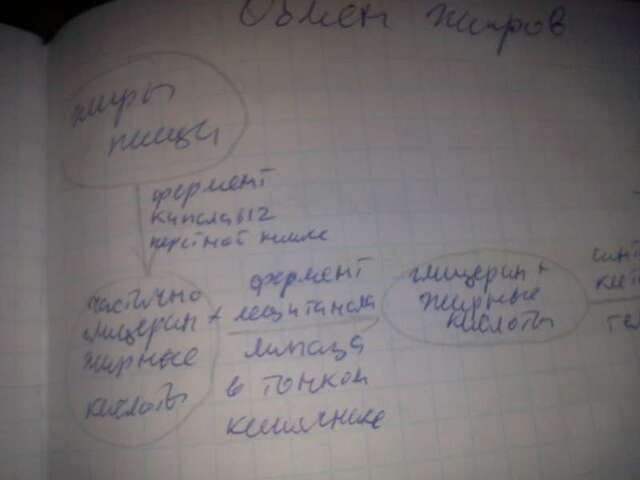 Обмен жиров
жиры
пищи
фермент
в 12
перстной кишке
частично
глицерин +
жирные
кислоты
фермент
липаза
в тонком
кишечнике
глицерин +
жирные
кислоты